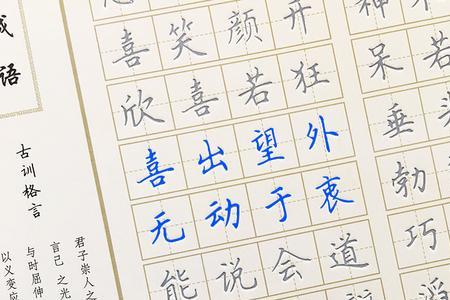 成语
古训格言
君子崇人之
言己之光
与时屈伸
以义变应
喜笑颜开
欣喜若狂
喜出望外
无动于衷
能说会道
神
呆若
垂头
勃
巧